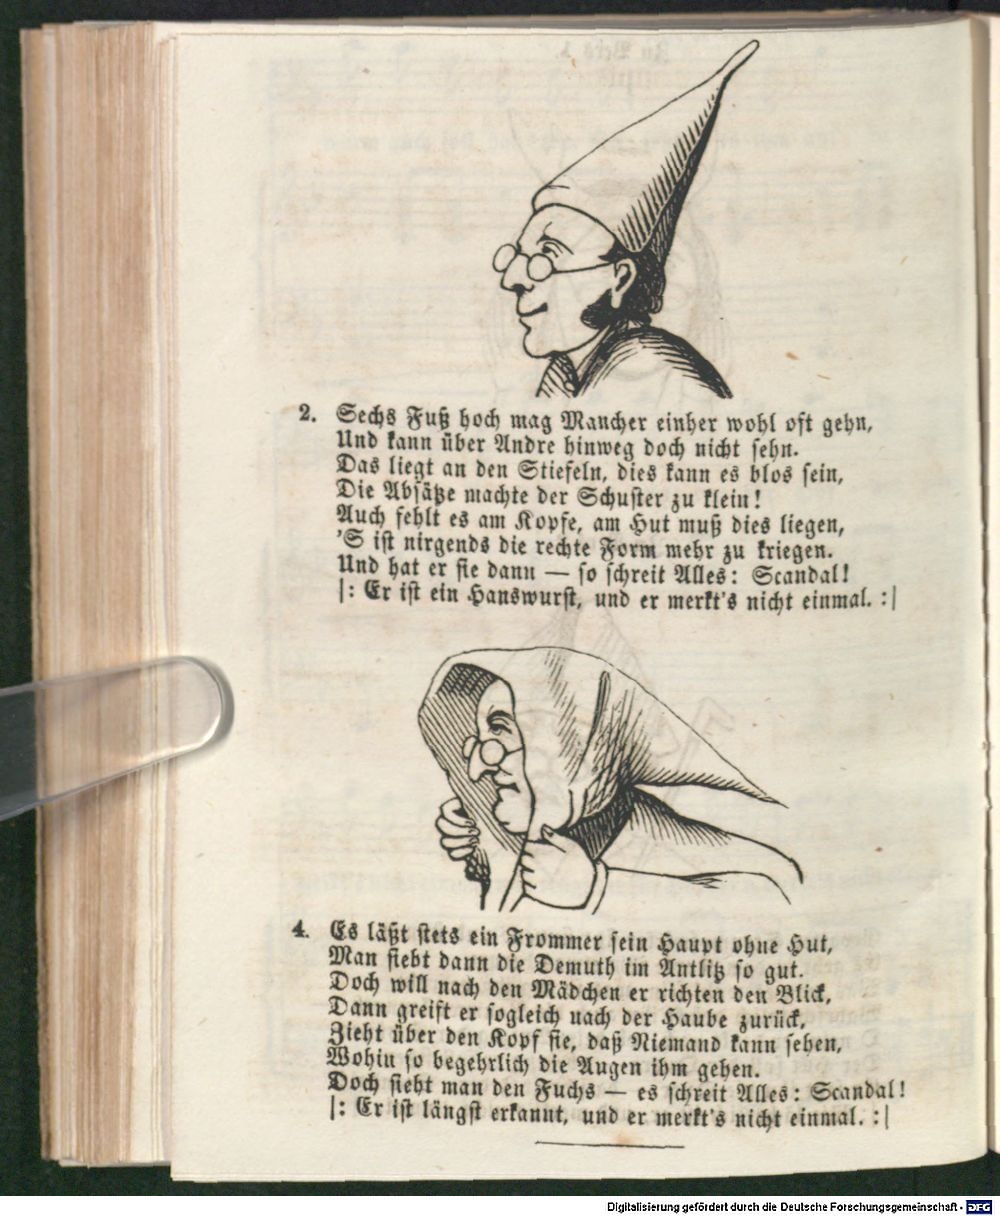 2. Sechs Fuß hoch mag Mancher einher wohl oft gehn,
Und kann über Andre hinweg doch nicht sehn.
Das liegt an den Stiefeln, dies kann es blos sein,
Die Absätze machte der Schuster zu klein!
Auch fehlt es am Kopfe, am Hut muß dies liegen,
'S ist nirgends die rechte Form mehr zu kriegen.
Und hat er sie dann — so schreit Alles: Scandal!
|: Er ist ein Hanswurst, und er merkt's nicht einmal. :|
4. Es läßt stets ein Frommer sein Haupt ohne Hut,
Man sieht dann die Demuth im Antlitz so gut.
Doch will nach den Mädchen er richten den Blick,
Dann greift er sogleich nach der Haube zurück,
Zieht über den Kopf sie, daß Niemand kann sehen,
Wohin so begehrlich die Augen ihm gehen.
Doch sieht man den Fuchs — es schreit Alles: Scandal!
|: Er ist längst erkannt, und er merkt's nicht einmal. :|
Digitalisierung gefördert durch die Deutsche Forschungsgemeinschaft - DFG